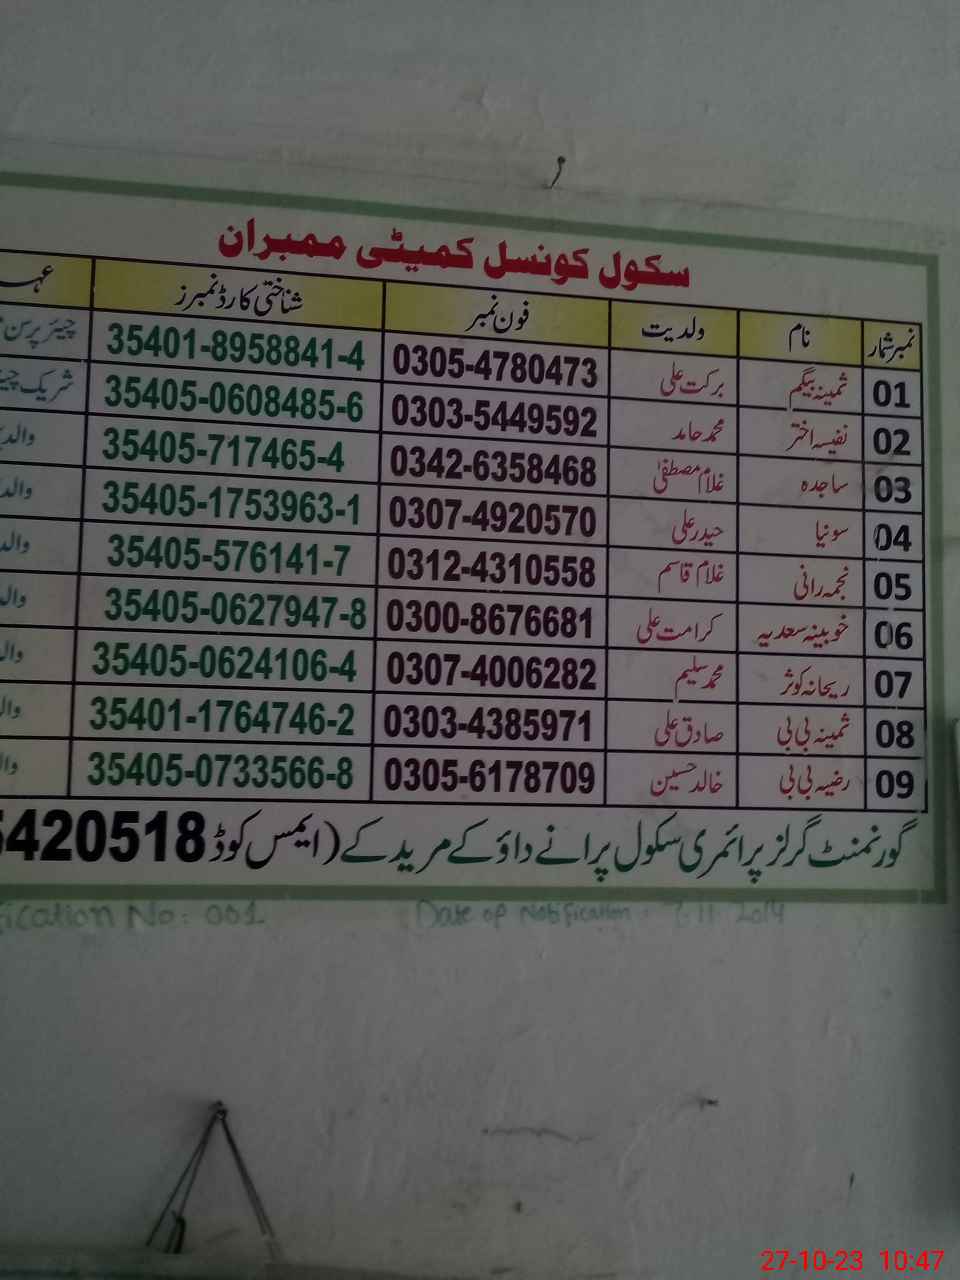 سکول کونسل کمیٹی ممبران
نمبر شمار نام ولدیت فون نمبر شناختی کارڈ نمبرز
01 ثمینہ بیگم برکت علی 0305-4780473 35401-8958841-4 چیئر پرسن
02 نفیسہ اختر محمد حامد 0303-5449592 35405-0608485-6 شریک
03 ساجدہ غلام مصطفیٰ 0342-6358468 35405-717465-4
04 سونیا حیدر علی 0307-4920570 35405-1753963-1
05 نجمہ رانی غلام قاسم 0312-4310558 35405-576141-7
06 خوبینہ سعدیہ کرامت علی 0300-8676681 35405-0627947-8
07 ریحانہ کوثر محمد سلیم 0307-4006282 35405-0624106-4
08 ثمینہ بی بی صادق علی 0303-4385971 35401-1764746-2
09 رضیہ بی بی خالد حسین 0305-6178709 35405-0733566-8
گورنمنٹ گرلز پرائمری سکول پرانے داؤ کے مرید کے (ایمس کوڈ 5420518
fication No: 001 Date of Notification: 7-11-2014
27-10-23 10:47